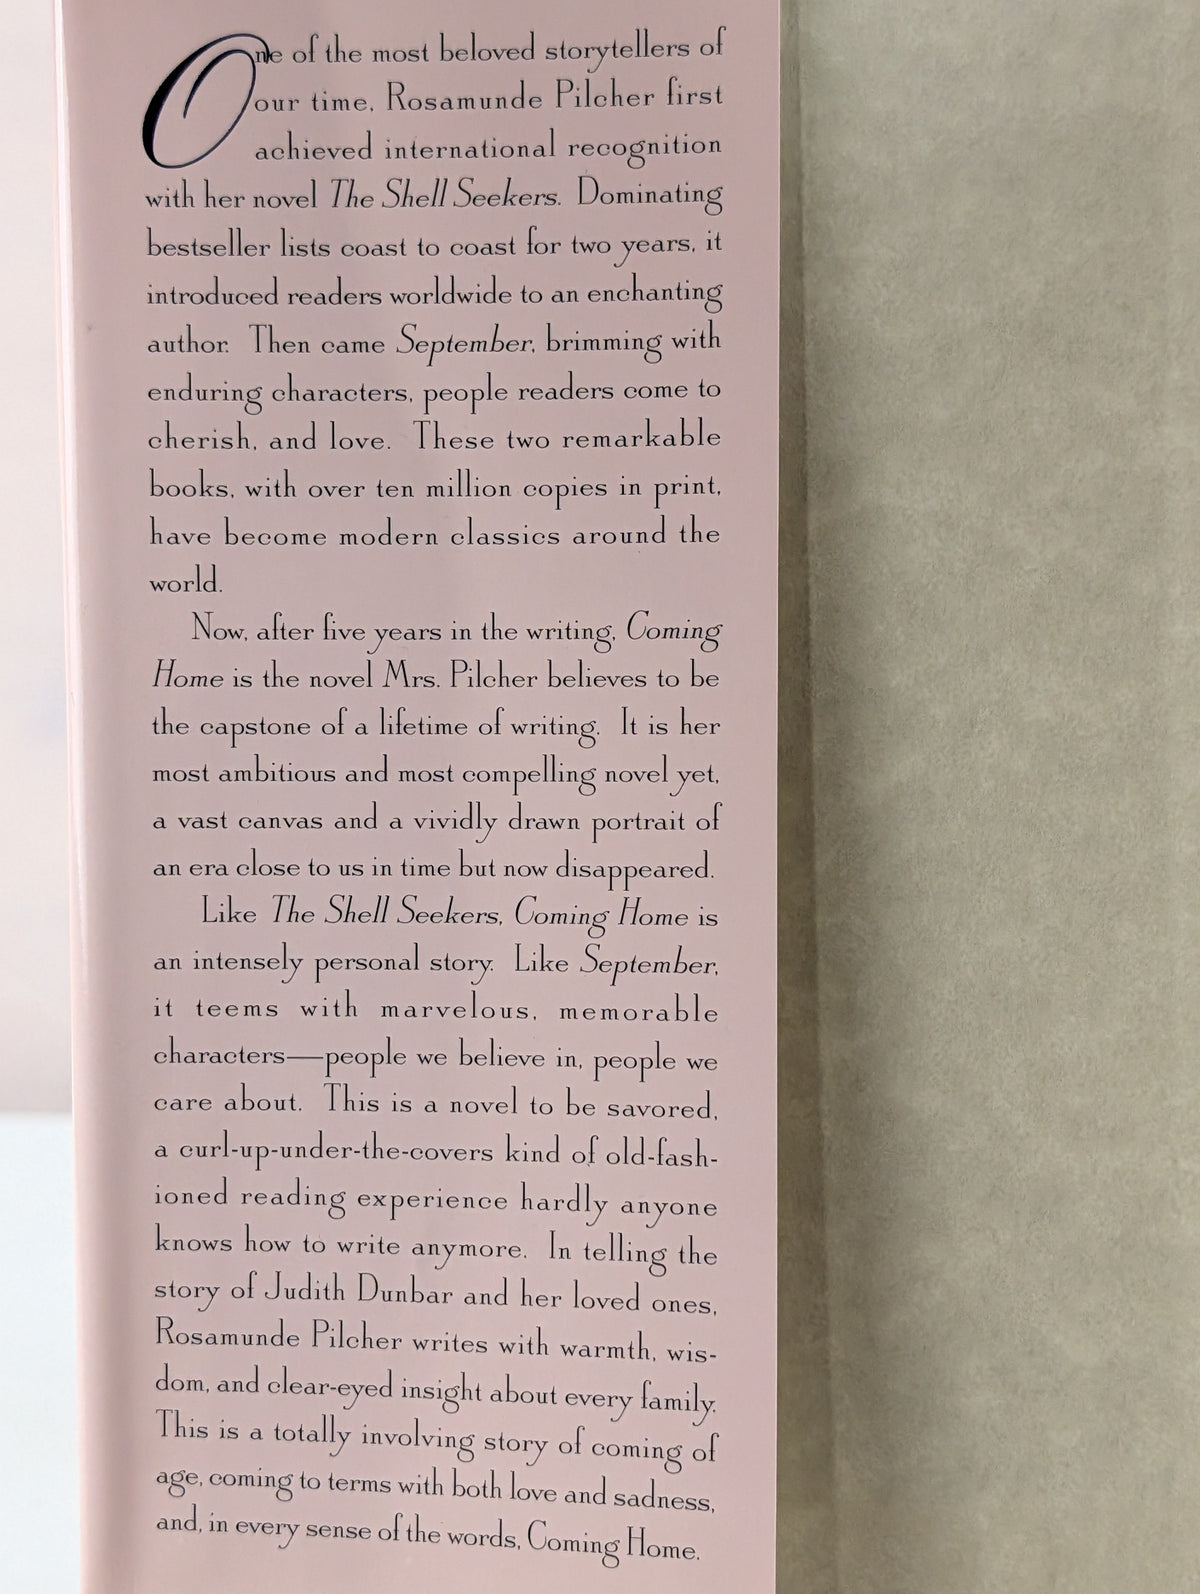 One of the most beloved storytellers of
our time, Rosamunde Pilcher first
achieved international recognition
with her novel The Shell Seekers. Dominating
bestseller lists coast to coast for two years, it
introduced readers worldwide to an enchanting
author. Then came September, brimming with
enduring characters, people readers come to
cherish, and love. These two remarkable
books, with over ten million copies in print,
have become modern classics around the
world.
Now, after five years in the writing, Coming
Home is the novel Mrs. Pilcher believes to be
the capstone of a lifetime of writing. It is her
most ambitious and most compelling novel yet,
a vast canvas and a vividly drawn portrait of
an era close to us in time but now disappeared.
Like The Shell Seekers, Coming Home is
an intensely personal story. Like September,
it teems with marvelous, memorable
characters—people we believe in, people we
care about. This is a novel to be savored,
a curl-up-under-the-covers kind of old-fash-
ioned reading experience hardly anyone
knows how to write anymore. In telling the
story of Judith Dunbar and her loved ones,
Rosamunde Pilcher writes with warmth, wis-
dom, and clear-eyed insight about every family.
This is a totally involving story of coming of
age, coming to terms with both love and sadness,
and, in every sense of the words, Coming Home.